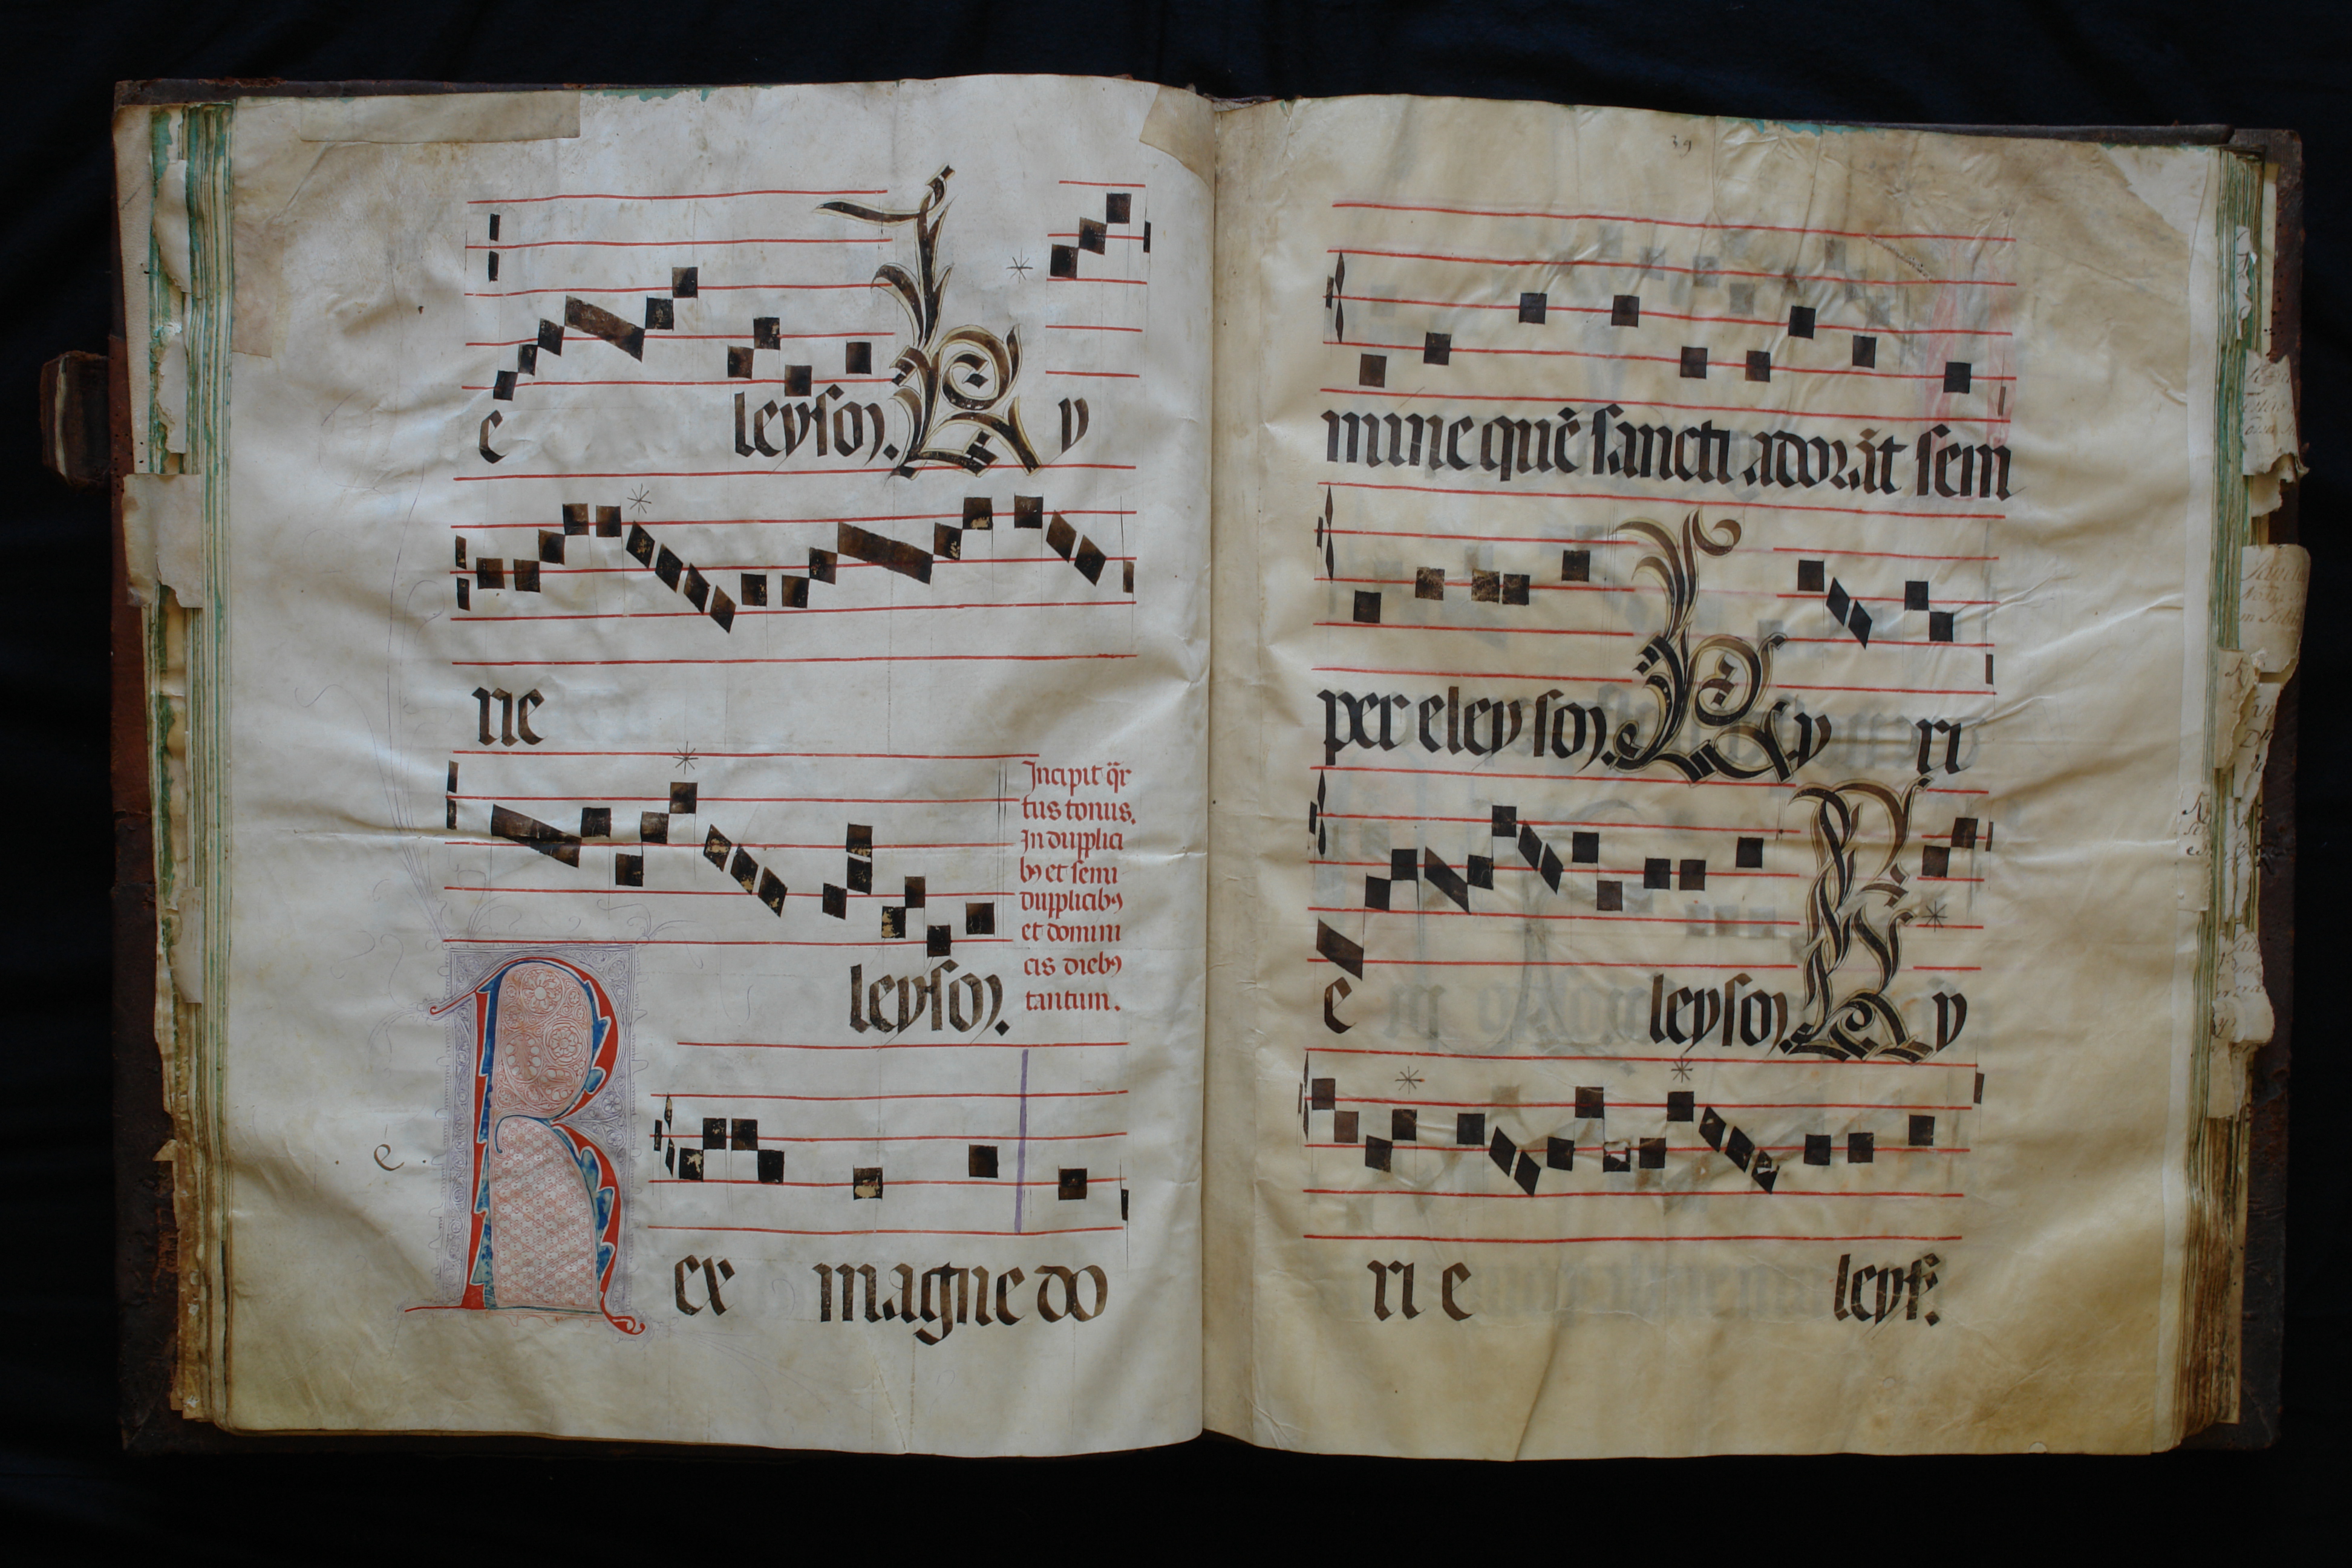 e leyson. Ky
rie
leyson.
Incipit q̄r
tus tonus.
In dupplici
bꝯ et semi
dupplicibꝯ
et domini
cis diebꝯ
tantum.
. e .
Rex magne do
39
mine quē sancti adorāt sem
per eleyson. Ky ri
e leyson. Ky
ri e leys.